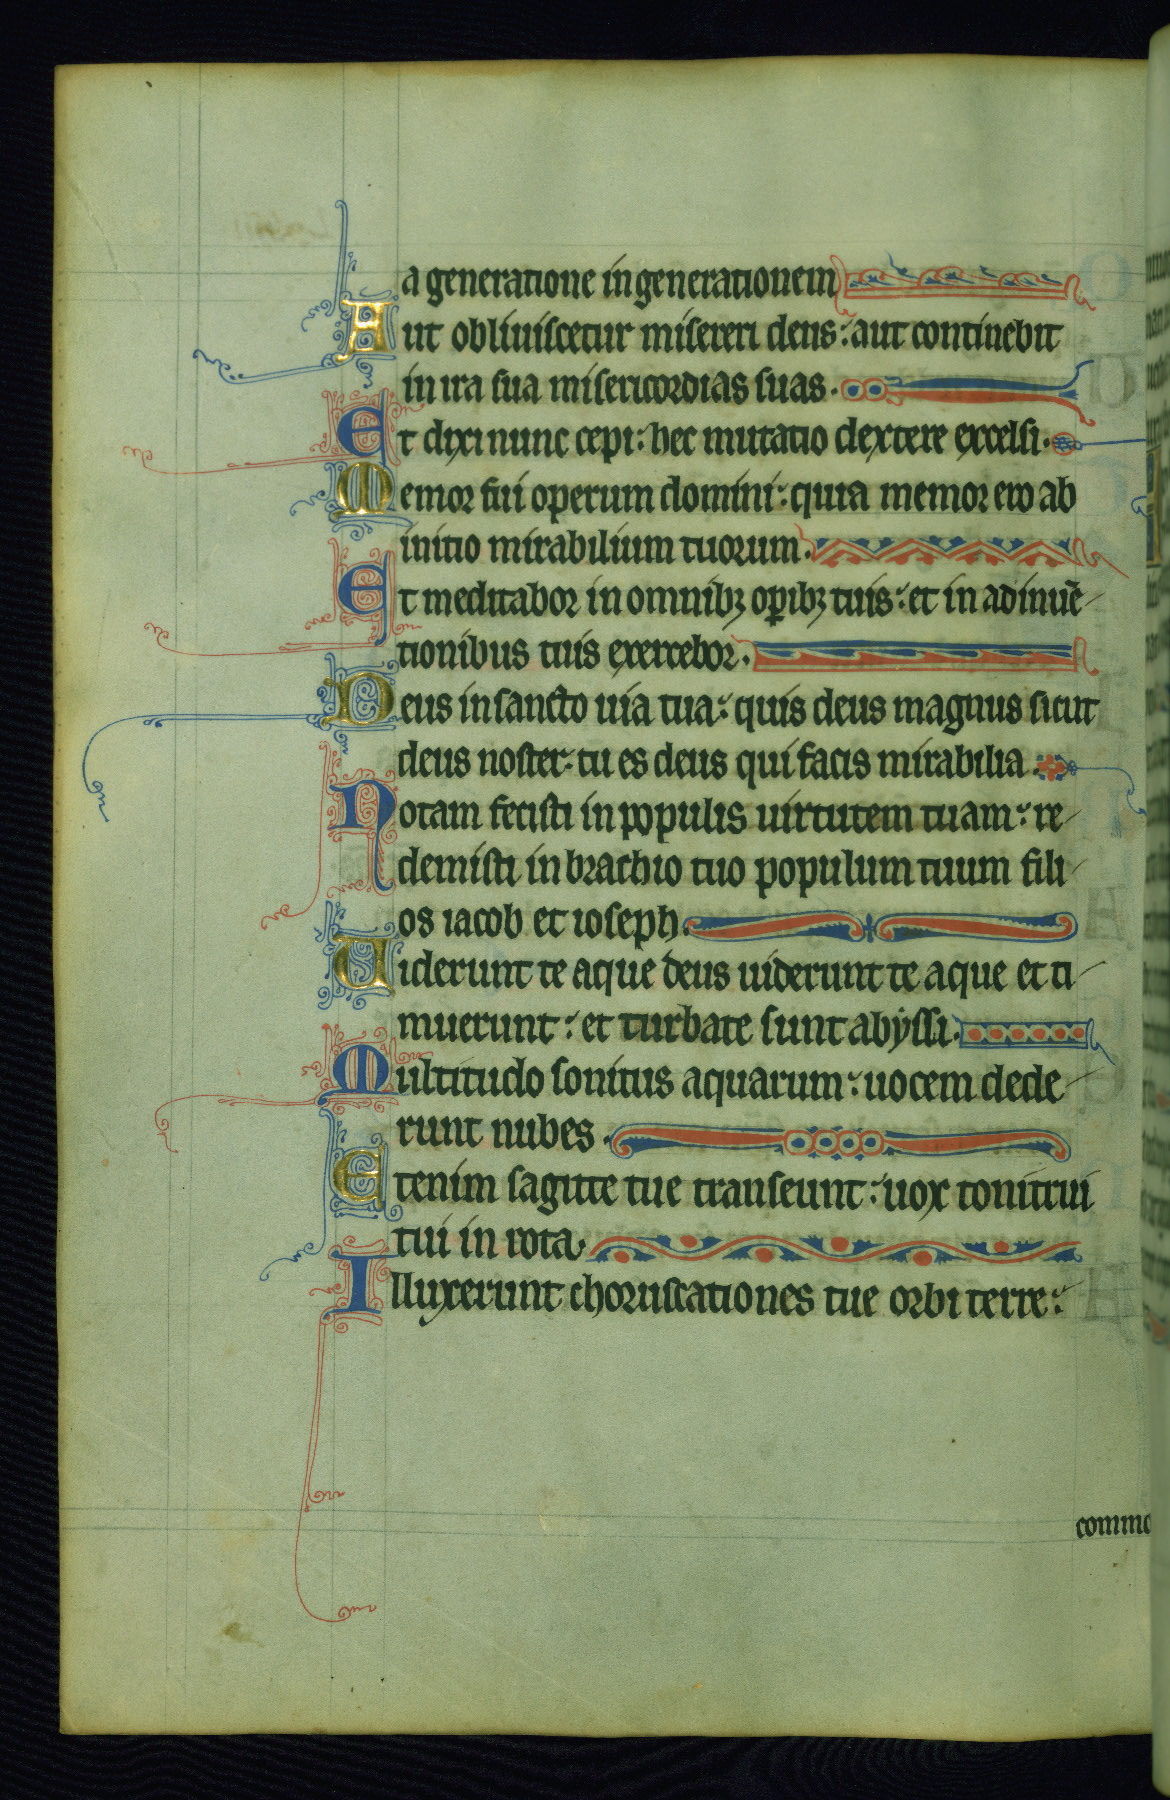 a generatione in generationem
Aut obliuiscetur misereri deus: aut continebit
in ira sua misericordias suas.
Et dixi nunc cepi: hec mutatio dextere excelsi.
Memor fui operum domini: quia memor ero ab
initio mirabilium tuorum.
Et meditabor in omnibꝫ oꝑibꝫ tuis: et in adinuē
tionibus tuis exercebor.
Deus in sancto uia tua: quis deus magnus sicut
deus noster: tu es deus qui facis mirabilia.
Notam fecisti in populis uirtutem tuam: re
demisti in brachio tuo populum tuum fili
os iacob et ioseph.
Uiderunt te aque deus uiderunt te aque et ti
muerunt: et turbate sunt abyssi.
Multitudo sonitus aquarum: uocem dede
runt nubes.
Etenim sagitte tue transeunt: uox tonitrui
tui in rota.
Illuxerunt choruscationes tue orbi terre:
commo